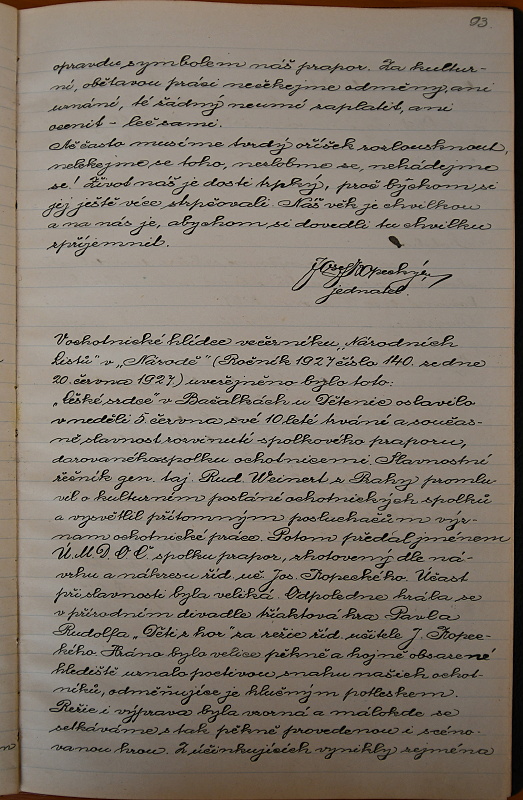 93
opravdu symbolem náš prapor. Za kultur-
ní, obětavou práci nečekejme odměny, ani
uznání, té žádný neumí zaplatit, ani
ocenit – leč sami.
Ač často musíme tvrdý oříšek rozlousknout,
nelekejme se toho, nezlobme se, nehádejme
se! Život náš je dosti trpký, proč bychom si
jej ještě více strpčovali. Náš věk je chvilkou
a na nás je, abychom si dovedli tu chvilku
zpříjemnit.
Josef Kopecký,
jednatel.
V ochotnické hlídce večerníku „Národních
listů" v „Národě" (Ročník 1927 číslo 140. ze dne
20. června 1927.) uveřejněno bylo toto:
„České srdce" v Bačalkách u Dětenic oslavilo
v neděli 5. června své 10 leté trvání a součas-
ně, slavnost rozvinutí spolkového praporu,
darovaného spolku ochotnicemi. Slavnostní
řečník gen. taj. Rud. Weinert z Prahy promlu-
vil o kulturním poslání ochotnických spolků
a vysvětlil přítomným posluchačům výz-
nam ochotnické práce. Potom předal jménem
Ú. M. D. O. Č. spolku prapor, zhotovený dle ná-
vrhu a nákresu říd. uč. Jos. Kopeckého. Účast
při slavnosti byla veliká. Odpoledne hrála se
v přírodním divadle tříaktová hra Pavla
Rudolfa „Děti z hor" za režie říd. učitele J. Kopec-
kého. Hráno bylo velice pěkně a hojně obsazené
hlediště uznalo poctivou snahu našich ochot-
níků, odměňujíce je hlučným potleskem.
Režie i výprava byla vzorná a málokde se
setkáváme s tak pěkně provedenou i scéno-
vanou hrou. Z účinkujících vynikly zejména